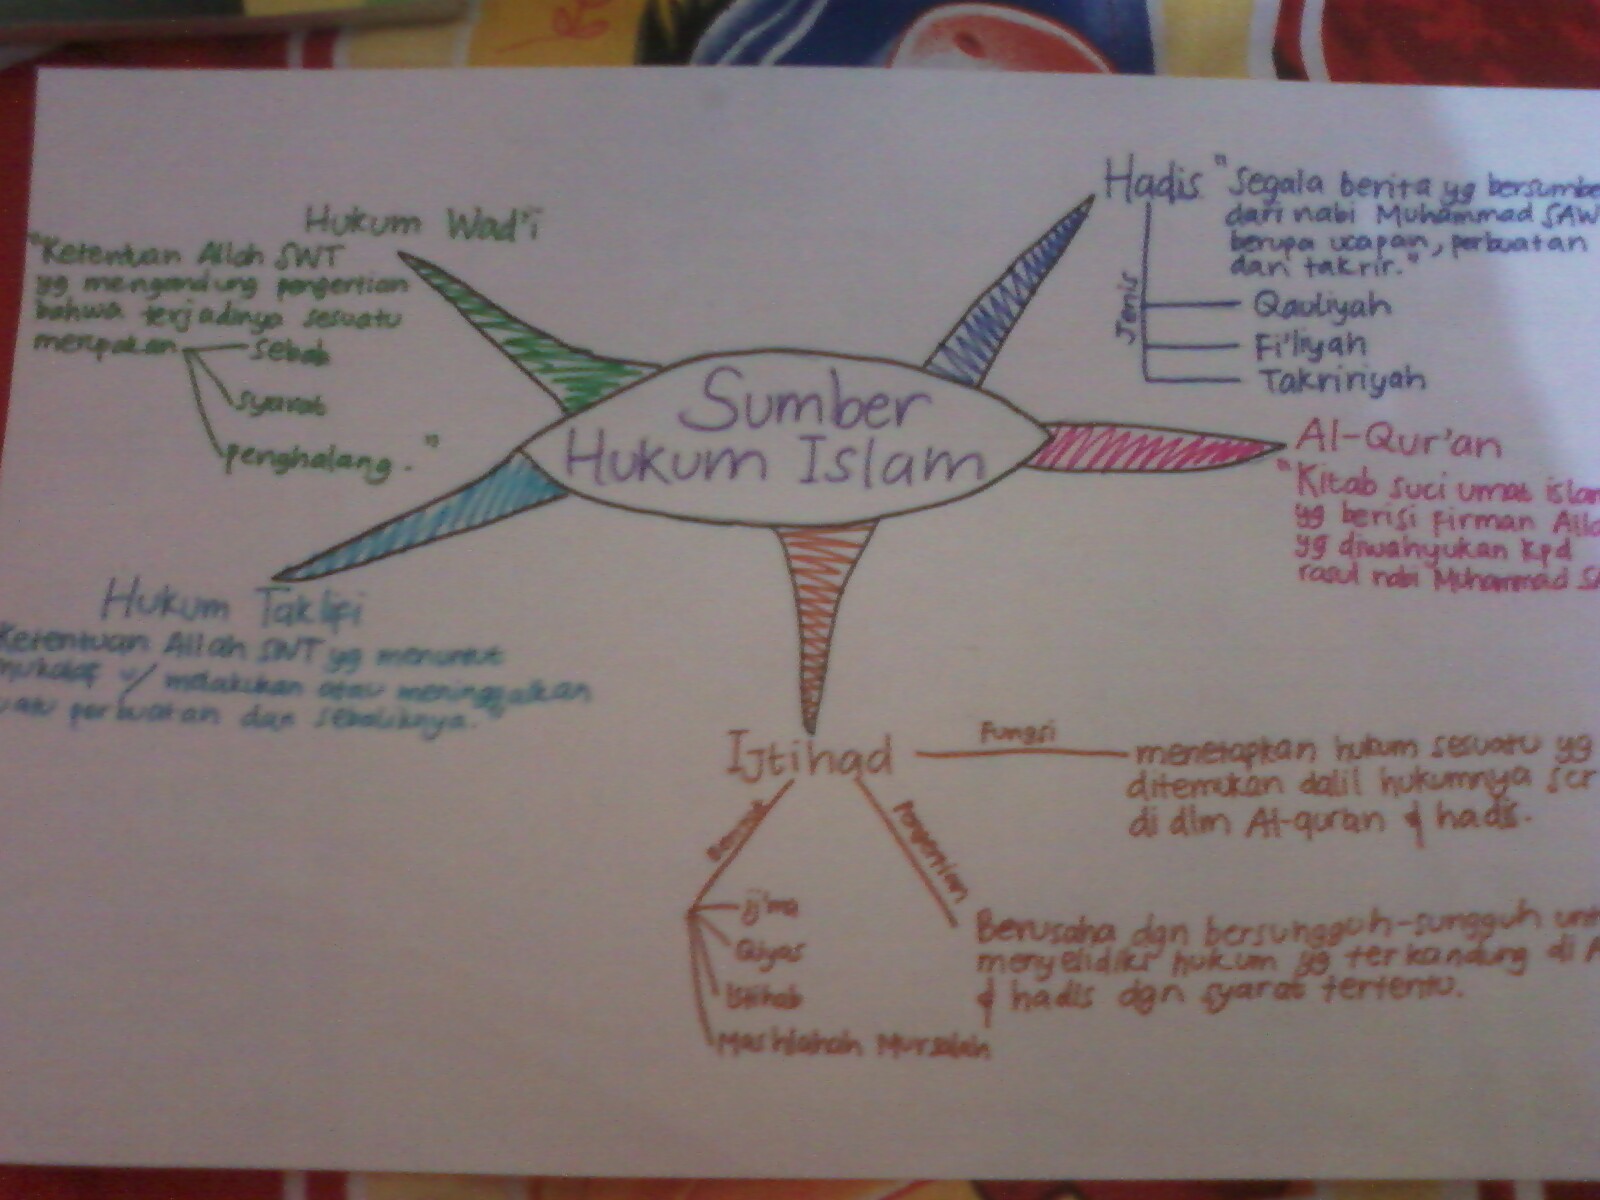 Sumber
Hukum Islam
Hadis "Segala berita yg
dari nabi Muhammad SAW
berupa ucapan, perbuatan
dan takrir."
Jenis
Qauliyah
Fi'liyah
Takririyah
Al-Qur'an
"Kitab suci umat
yg berisi firman
yg diwahyukan kpd
rasul nabi Muhammad
Ijtihad
Fungsi
menetapkan hukum sesuatu yg
ditemukan dalil hukumnya
di dlm Al-quran & hadis.
Pengertian
Berusaha dgn bersungguh-sungguh
menyelidiki hukum yg terkandung di
& hadis dgn syarat tertentu.
ij'ma
Qiyas
Istihab
Mashlahah Mursalah
Hukum Taklifi
Ketentuan Allah SWT yg menuntut
melakukan atau meninggalkan
perbuatan dan sebaliknya."
Hukum Wad'i
"Ketentuan Allah SWT
yg mengandung pengertian
bahwa terjadinya sesuatu
merupakan
sebab
syarat
penghalang."